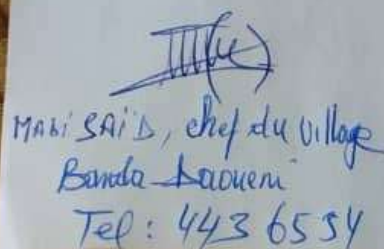 MABI SAÏD, chef du village
Banda-Daoueni
Tel : 443 65 34